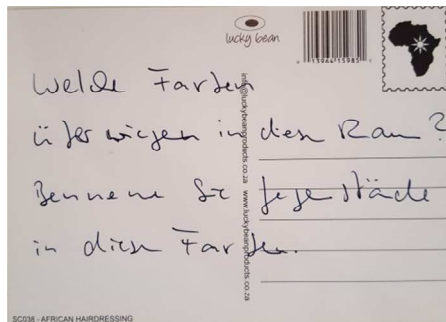 lucky bean
Welche Farben
überwiegen in diesem Raum?
Benennen Sie Gegenstände
in diesen Farben.
info@luckybeanproducts.co.za www.luckybeanproducts.co.za
SC038 - AFRICAN HAIRDRESSING